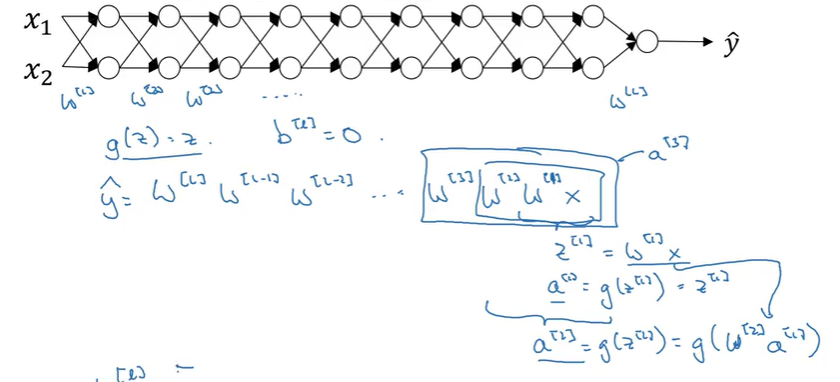 x₁
x₂
ŷ
w^[1] w^[2] w^[3] ..... w^[L]
g(z) = z. b^[l] = 0.
ŷ = w^[L] w^[L-1] w^[L-2] ... w^[3] w^[2] w^[1] x
a^[3]
z^[1] = w^[1] x
a^[1] = g(z^[1]) = z^[1]
a^[2] = g(z^[2]) = g(w^[2] a^[1])